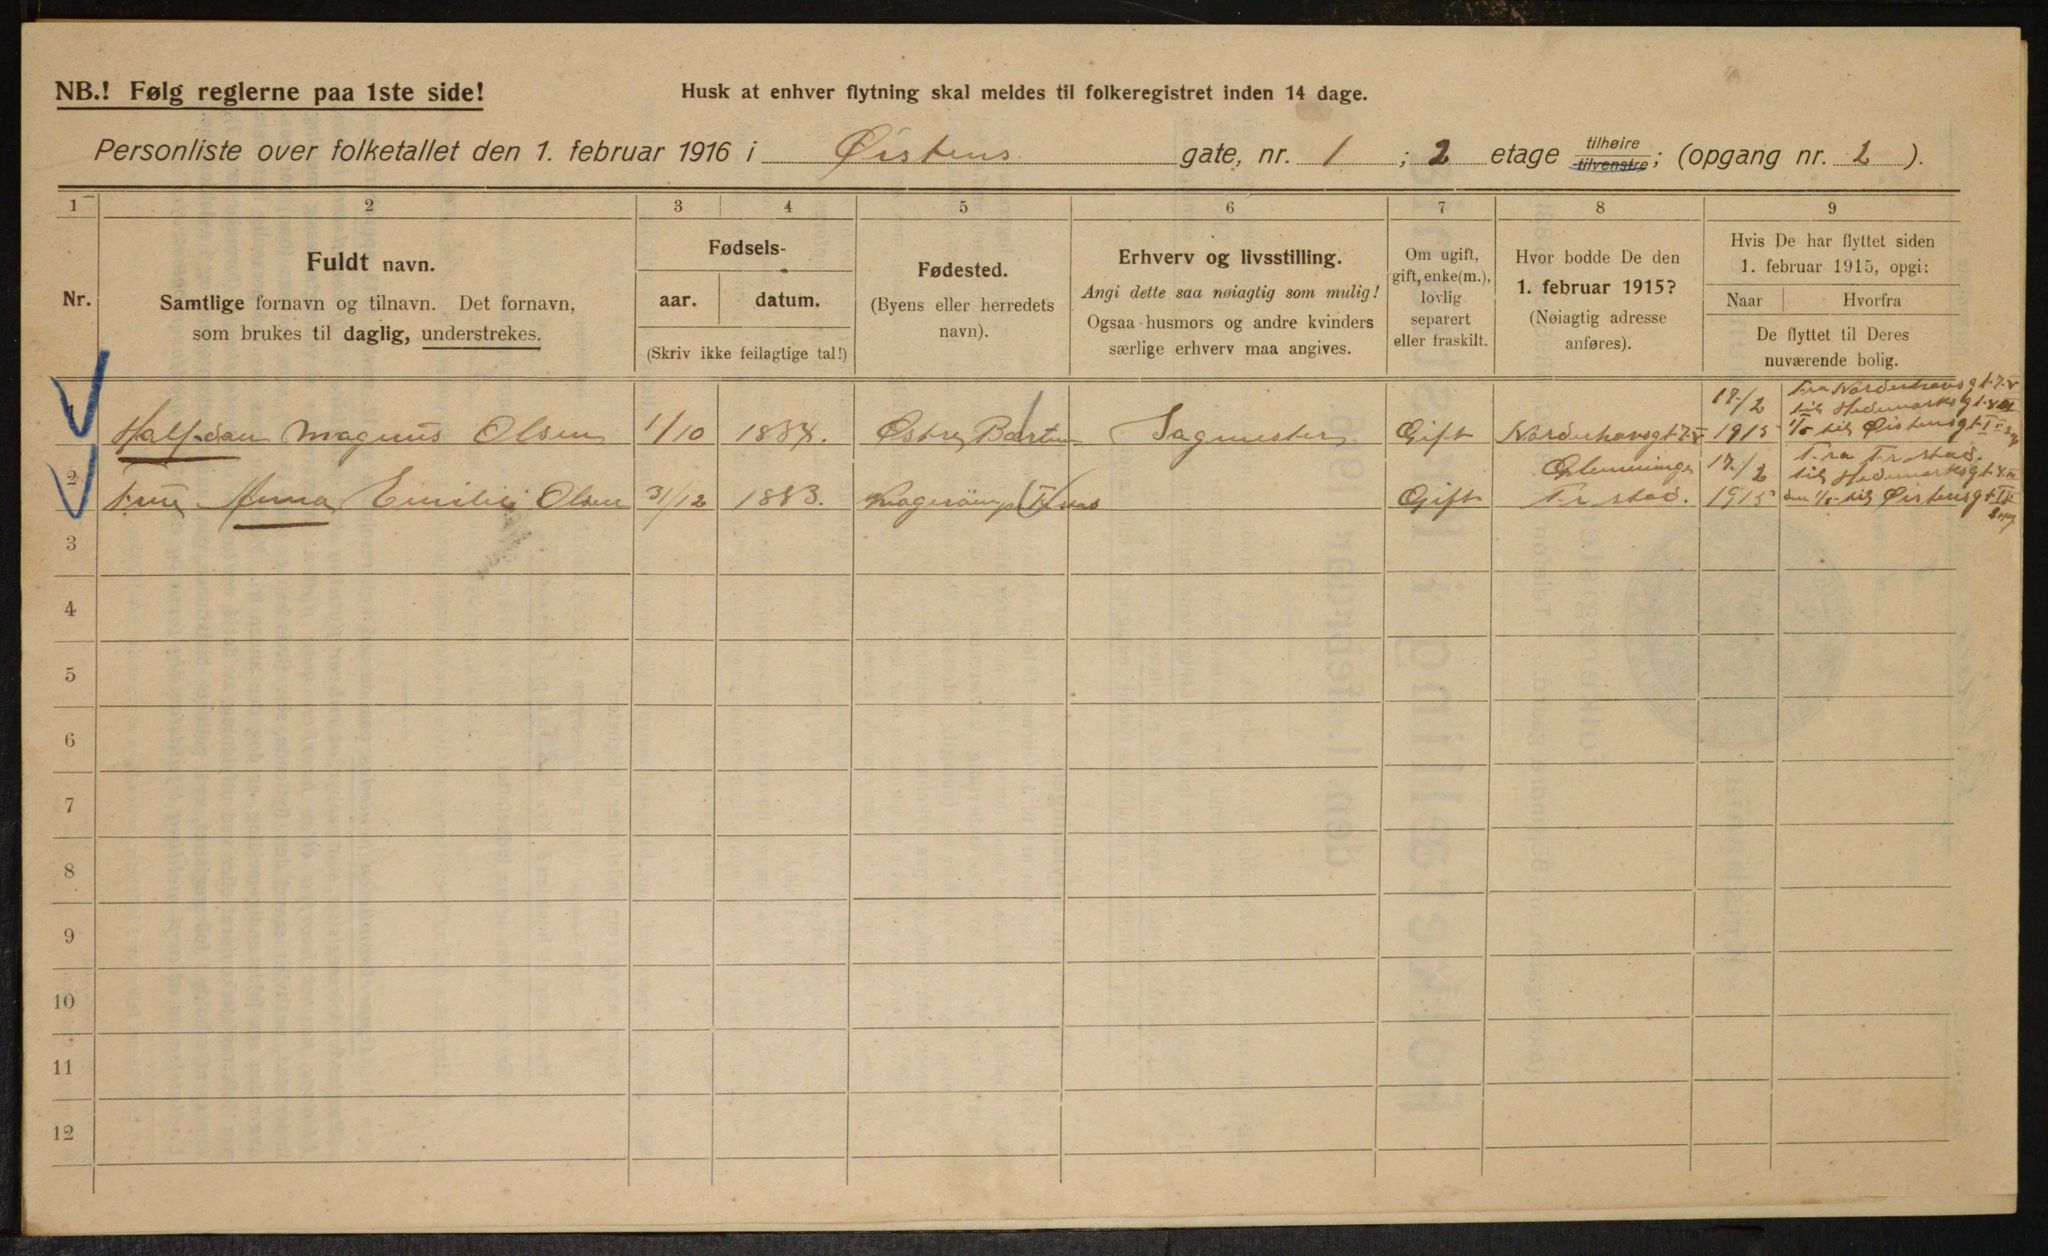 NB.! Følg reglerne paa 1ste side!
Husk at enhver flytning skal meldes til folkeregistret inden 14 dage.
Personliste over folketallet den 1. februar 1916 i Øistens gate, nr. 1 ; 2 etage tilhøire tilvenstre; (opgang nr. 2 ).
1 2 3 4 5 6 7 8 9
Nr.
Fuldt navn.
Samtlige fornavn og tilnavn. Det fornavn,
som brukes til daglig, understrekes.
Fødsels-
aar. datum.
(Skriv ikke feilagtige tal!)
Fødested.
(Byens eller herredets
navn).
Erhverv og livsstilling.
Angi dette saa nøiagtig som mulig!
Ogsaa husmors og andre kvinders
særlige erhverv maa angives.
Om ugift,
gift, enke(m.),
lovlig
separert
eller fraskilt.
Hvor bodde De den
1. februar 1915?
(Nøiagtig adresse
anføres).
Hvis De har flyttet siden
1. februar 1915, opgi:
Naar Hvorfra
De flyttet til Deres
nuværende bolig.
Halfdan Magnus Olsen 1/10 1884. Østre Sagmester Gift Norderhovsgt. 7. V 17/2 1915 Fra Norderhovsgt. 7. V
til Hedemarksgt.
til Øistensgt.
2 Fru Anna Emilie Olsen 31/12 1883. Gift Glemminge
Frstad. 17/2 1915 Fra Frstad.
til Hedemarksgt.
den til Øistensgt.
3
4
5
6
7
8
9
10
11
12